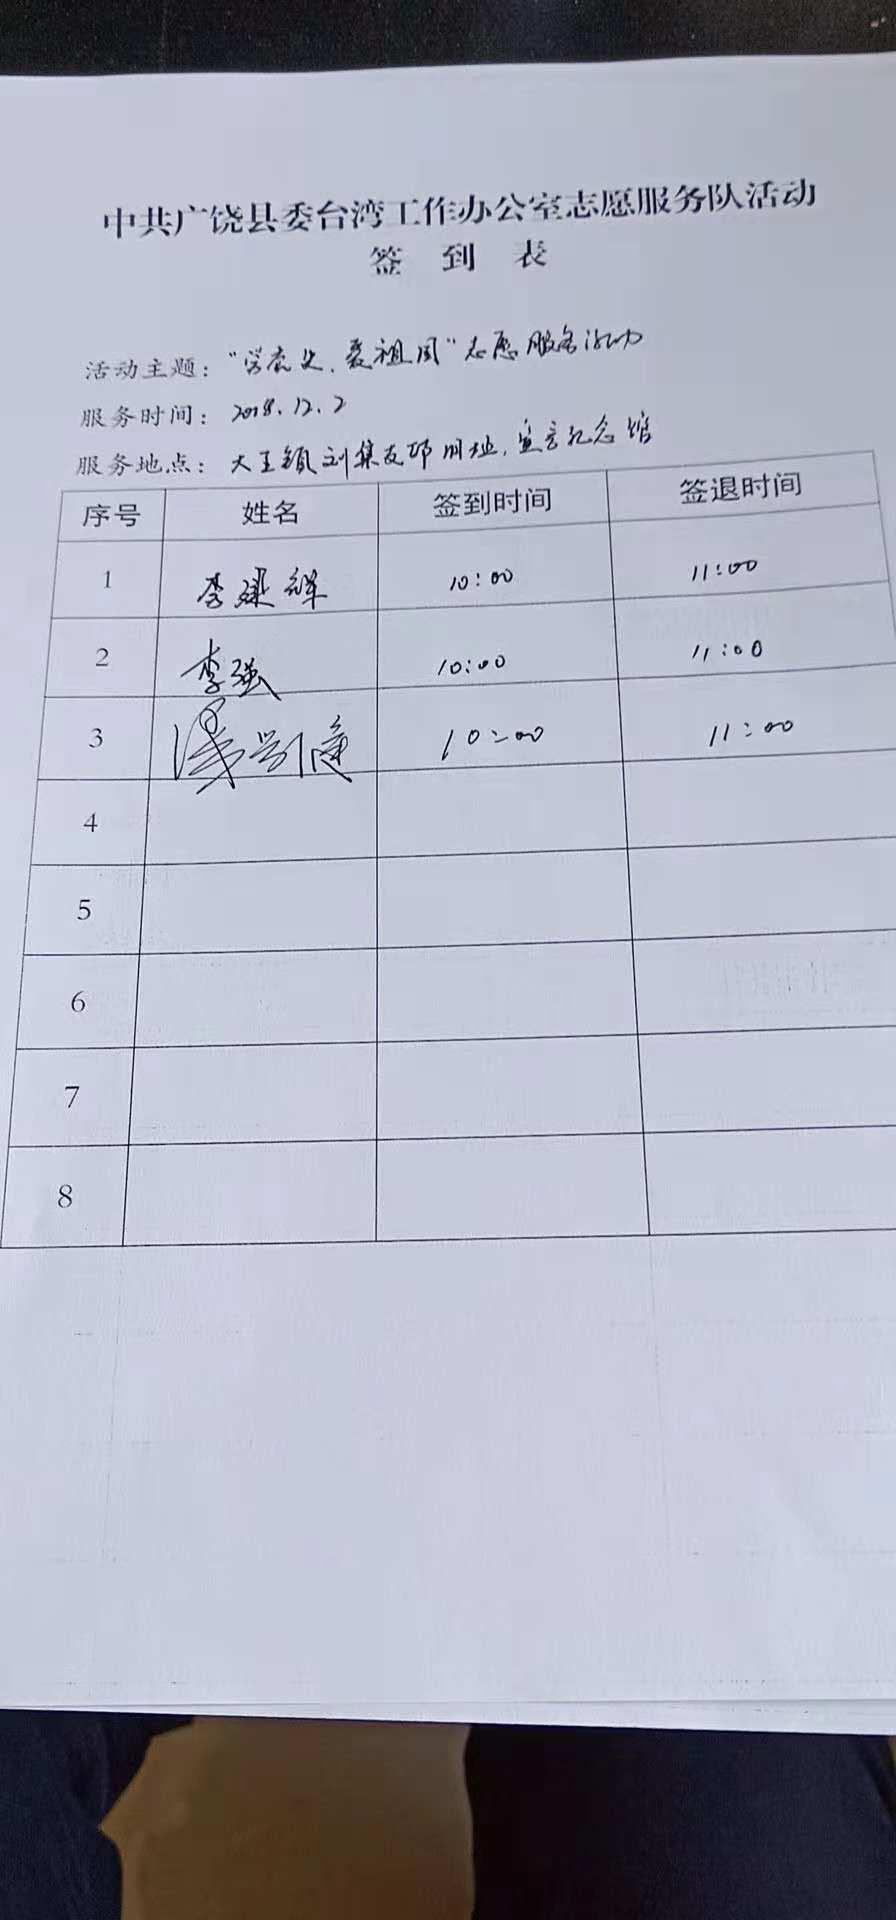 中共广饶县委台湾工作办公室志愿服务队活动
签 到 表
活动主题："学党史、爱祖国"志愿服务活动
服务时间：2018.12.2
服务地点：大王镇刘集支部旧址，宣言纪念馆
序号 姓名 签到时间 签退时间
1 李建辉 10:00 11:00
2 李强 10:00 11:00
3 10:00 11:00
4
5
6
7
8